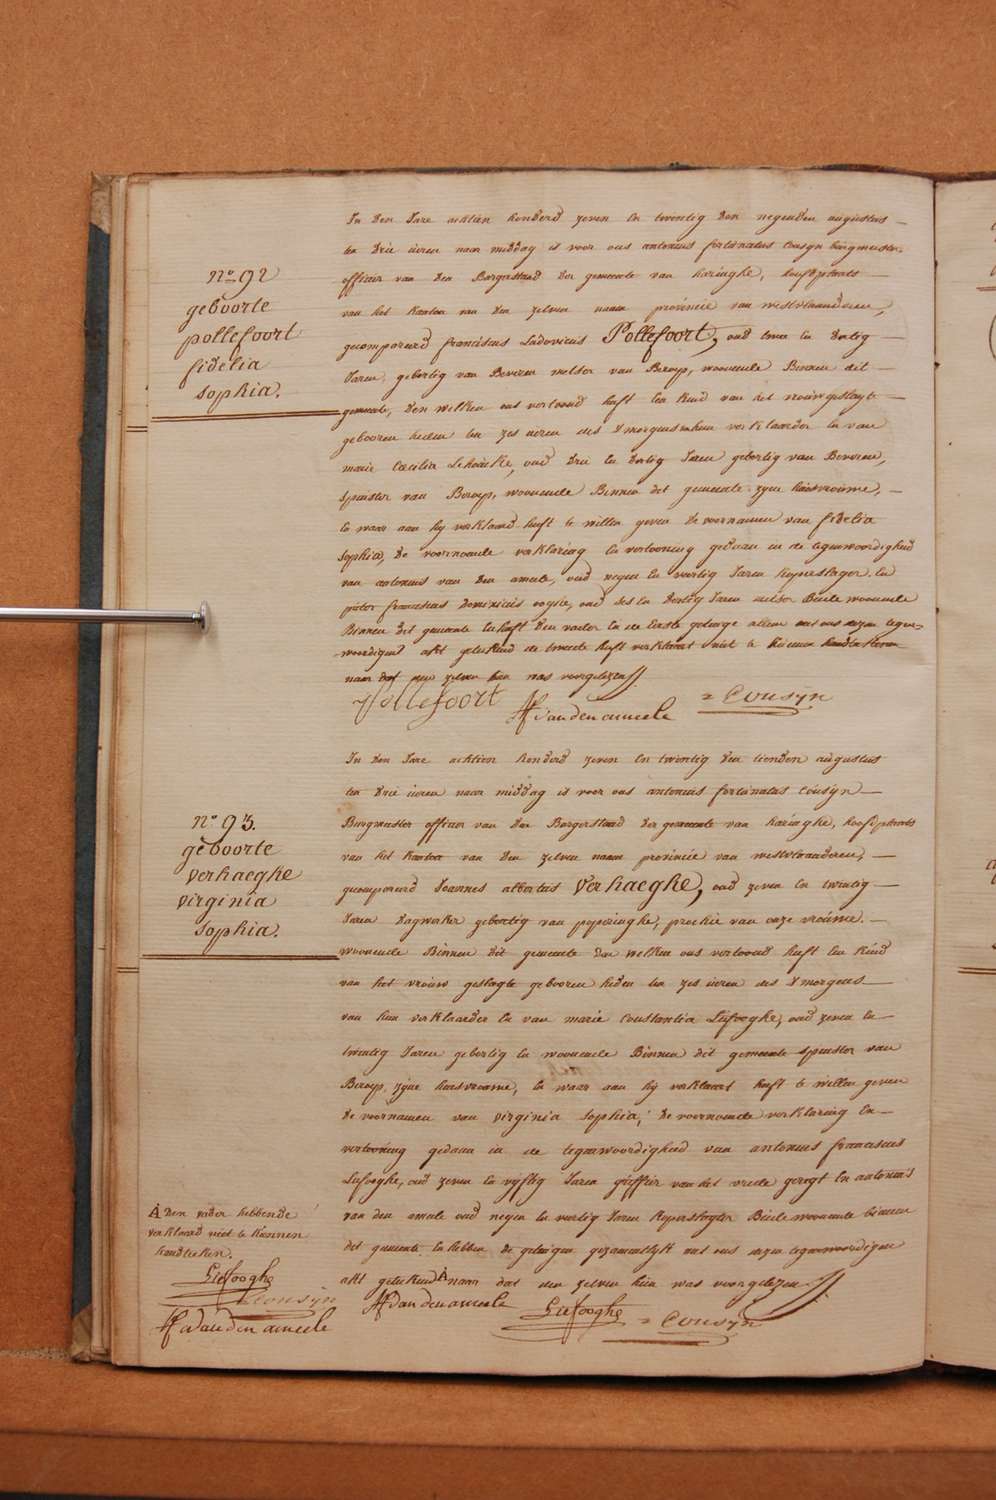 In den Jare achtien honderd zeven en twintig den negenden augustus
ten drie uren naer middag is voor ons antonius fortunatus Cousyn burgmeester
officier van den Burgerstand der gemeente van haringhe, hoofdplaets
van het Kanton van den zelven naem provincie van westvlaanderen,
gecompareerd franciscus Ludovicus Pollefoort, oud twee en dertig
Jaren, gebortig van Beveren metser van Beroep, woonende Binnen dit
gemeente, den welken ons vertoond heeft een kind van het vrouwgeslagte
gebooren heden ten zes uren des s'morgens van hem verklaarder en van
marie Cæcilia Lehoücke, oud drie en dertig Jaren gebortig van Beveren,
spinster van Beroep, woonende Binnen dit gemeente zyne huisvrouwe,
en waar aan hy verklaard heeft te willen geven de voornamen van fidelia
Sophia, de voornoemde verklaring en vertooning gedaan in de tegenwoordigheid
van antonius van den ameele, oud negen en veertig Jaren kuyperslager en
pieter franciscus Dominicus oogste, oud ses en dertig Jaren metser Beide woonende
Binnen dit gemeente en heeft den vader en de Eerste getuige alleen met ons dezen tegen-
woordigend akt geteekend de tweede heeft verklaert niet te kunnen handteekenen
naer dat den zelven hun was voorgelezen
Pollefoort
AF Van den ameele
= Cousyn
n.º 92
geboorte
pollefoort
fidelia
Sophia.
In den Jare achtien honderd zeven en twintig den tienden augustus
ten drie uren naer middag is voor ons antonius fortunatus Cousyn
Burgmeester officier van den Burgerstand der gemeente van haringhe, hoofdplaets
van het Kanton van den zelven naem provincie van westvlaanderen,
gecompareerd Joannes albertus Verhaeghe, oud zeven en twintig
Jaren Dagwerker gebortig van poperinghe, prochie van onze vrouwe.
woonende Binnen dit gemeente den welken ons vertoond heeft een kind
van het vrouw geslagte gebooren heden ten zes uren des s'morgens
van hem verklaarder en van marie Constantia Liefooghe, oud zeven en
twintig Jaren gebortig en woonende Binnen dit gemeente spinster van
Beroep, zyne huisvrouwe, en waar aan hy verklaart heeft te willen geven
de voornamen van virginia Sophia, de voornoemde verklaring en
vertooning gedaan in de tegenwoordigheid van antonius franciscus
Liefooghe, oud zeven en vyftig Jaren griffier van het vrede geregt en antonius
van den ameele oud negen en veertig Jaren kuyperslager Beide woonende binnen
dit gemeente en hebben de getuigen gezamentlyk met ons dezen tegenwoordigen
akt geteekend A naer dat den zelven hun was voorgelezen
AF Van den ameele
Liefooghe
= Cousyn
n.º 93.
geboorte
verhaeghe
virginia
Sophia.
A Den vader hebbende
verklaard niet te kunnen
handteeken.
Liefooghe
= Cousyn
AF Van den ameele